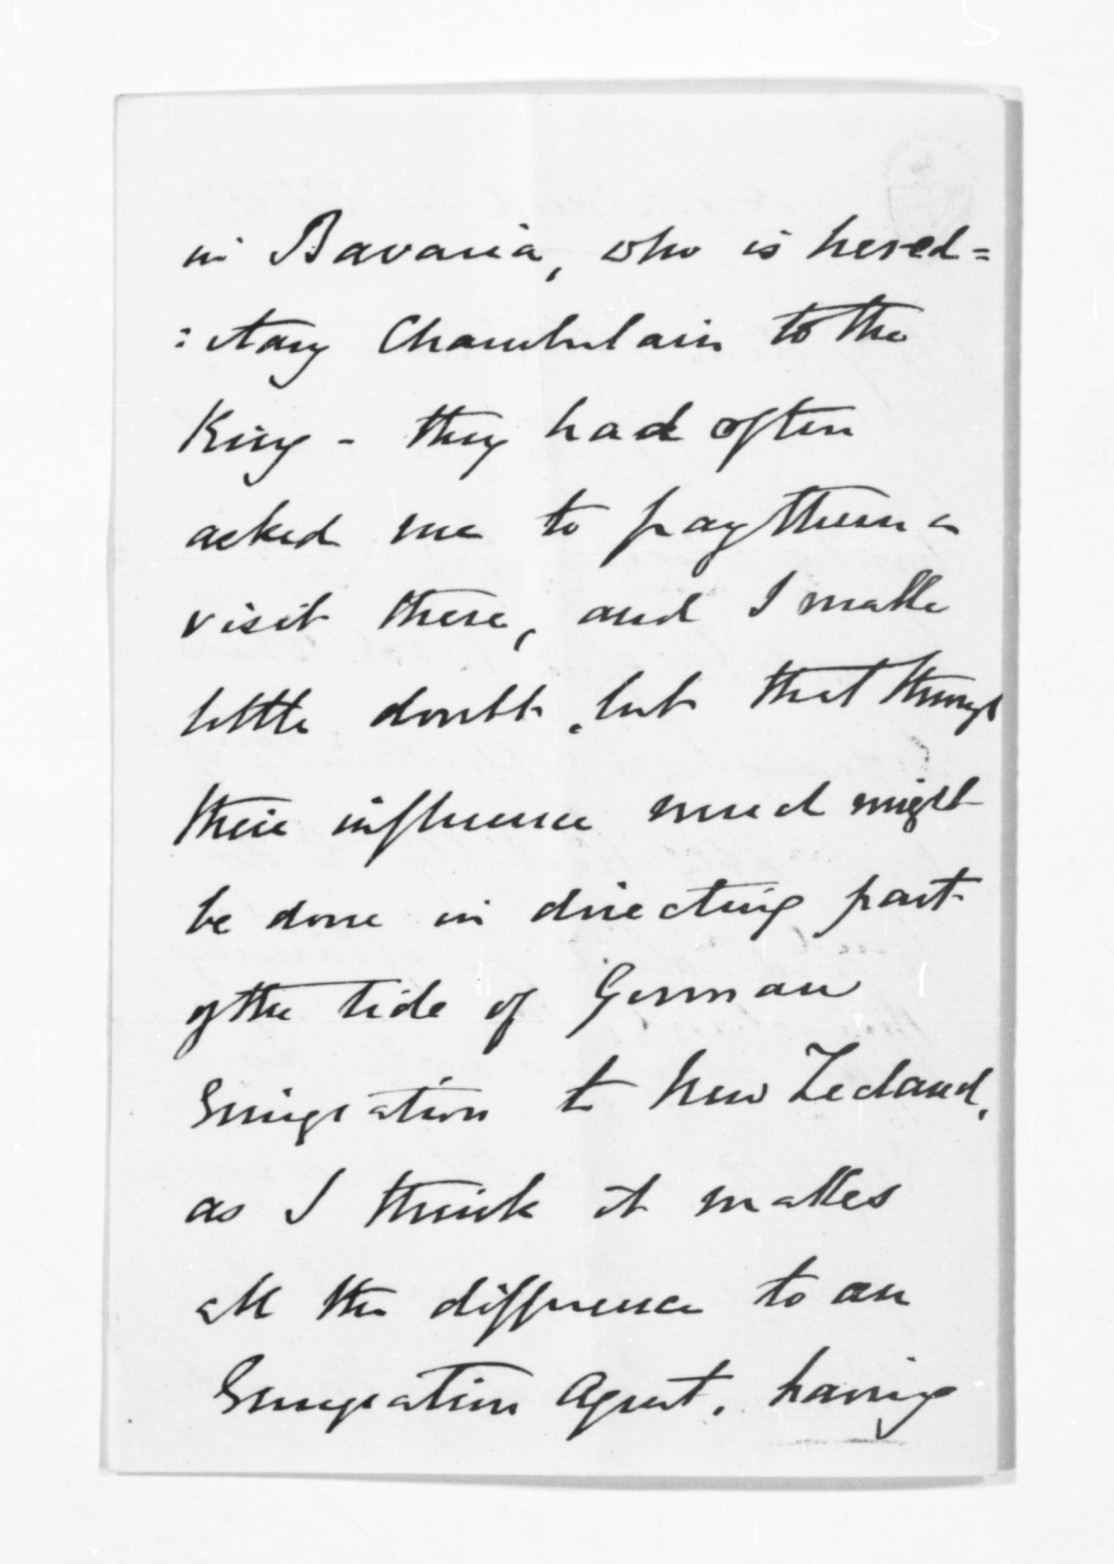 in Bavaria, who is hered=
:itary Chamberlain to the
King - they had often
asked me to pay them a
visit there, and I make
little doubt, but that through
their influence much might
be done in directing part
of the tide of German
Emigration to New Zealand,
as I think it makes
all the difference to an
Emigration Agent, having